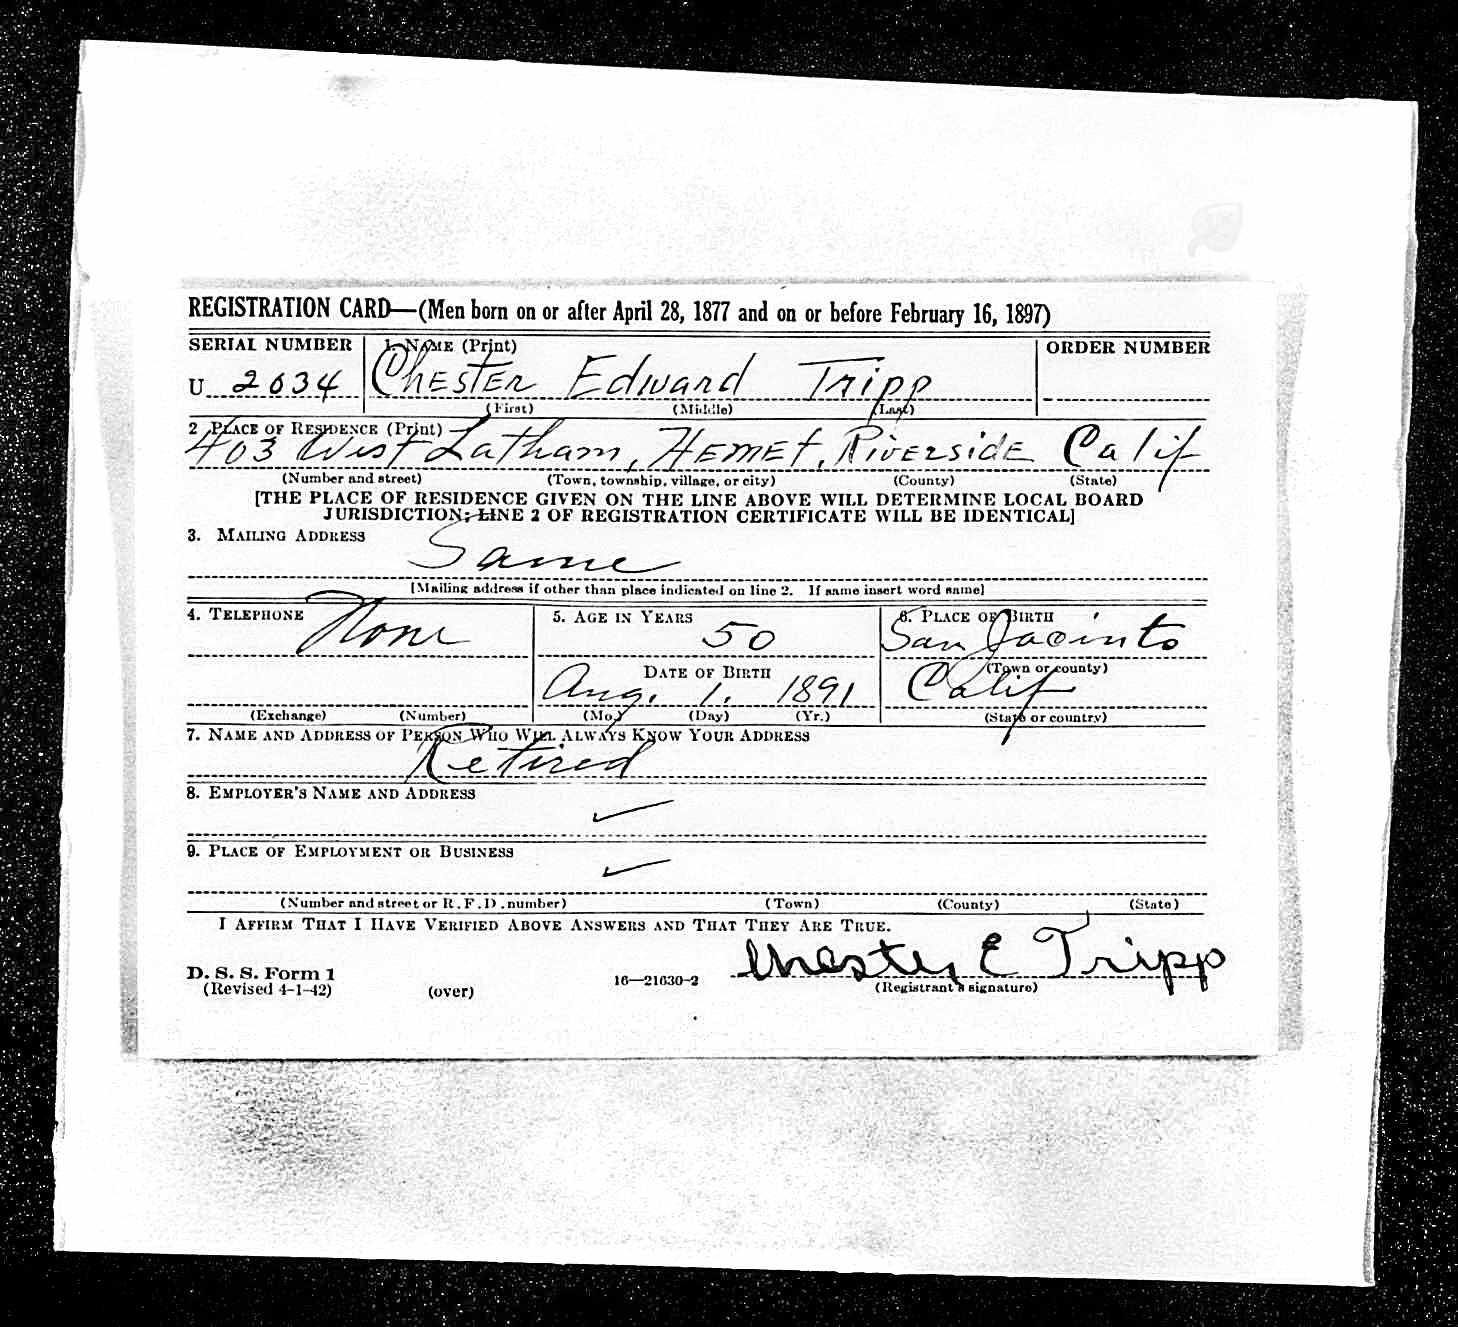 REGISTRATION CARD—(Men born on or after April 28, 1877 and on or before February 16, 1897)
SERIAL NUMBER 1. NAME (Print) ORDER NUMBER
U 2034 Chester Edward Tripp
(First) (Middle) (Last)
2 PLACE OF RESIDENCE (Print)
403 West Latham, HEMET, RIVERSIDE Calif
(Number and street) (Town, township, village, or city) (County) (State)
[THE PLACE OF RESIDENCE GIVEN ON THE LINE ABOVE WILL DETERMINE LOCAL BOARD
JURISDICTION; LINE 2 OF REGISTRATION CERTIFICATE WILL BE IDENTICAL]
3. MAILING ADDRESS
Same
[Mailing address if other than place indicated on line 2. If same insert word same]
4. TELEPHONE 5. AGE IN YEARS 6. PLACE OF BIRTH
None 50 San Jacinto
DATE OF BIRTH (Town or county)
Aug. 1. 1891 Calif
(Exchange) (Number) (Mo.) (Day) (Yr.) (State or country)
7. NAME AND ADDRESS OF PERSON WHO WILL ALWAYS KNOW YOUR ADDRESS
Retired
8. EMPLOYER'S NAME AND ADDRESS
9. PLACE OF EMPLOYMENT OR BUSINESS
(Number and street or R. F. D. number) (Town) (County) (State)
I AFFIRM THAT I HAVE VERIFIED ABOVE ANSWERS AND THAT THEY ARE TRUE.
Chester E Tripp
D. S. S. Form 1
(Revised 4-1-42) (over) 16—21630-2 (Registrant's signature)